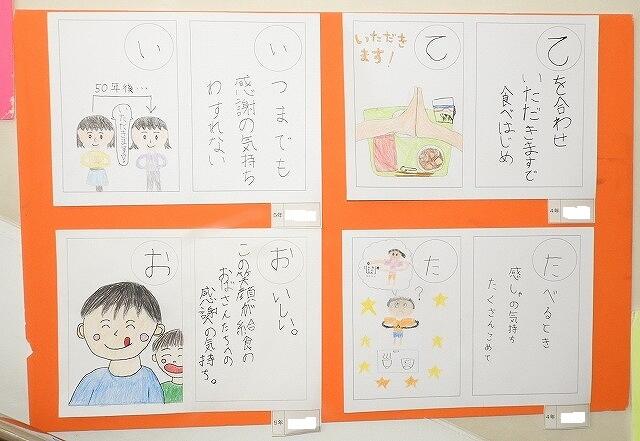 てを合わせ
いただきますで
食べはじめ
て
いただき
ます！
4年
いつまでも
感謝の気持ち
わすれない
い
50年後…
5年
たべるとき
感しゃの気持ち
たくさんこめて
た
?
4年
おいしい。
この笑顔が給食の
おばさんたちへの
感謝の気持ち。
お
5年